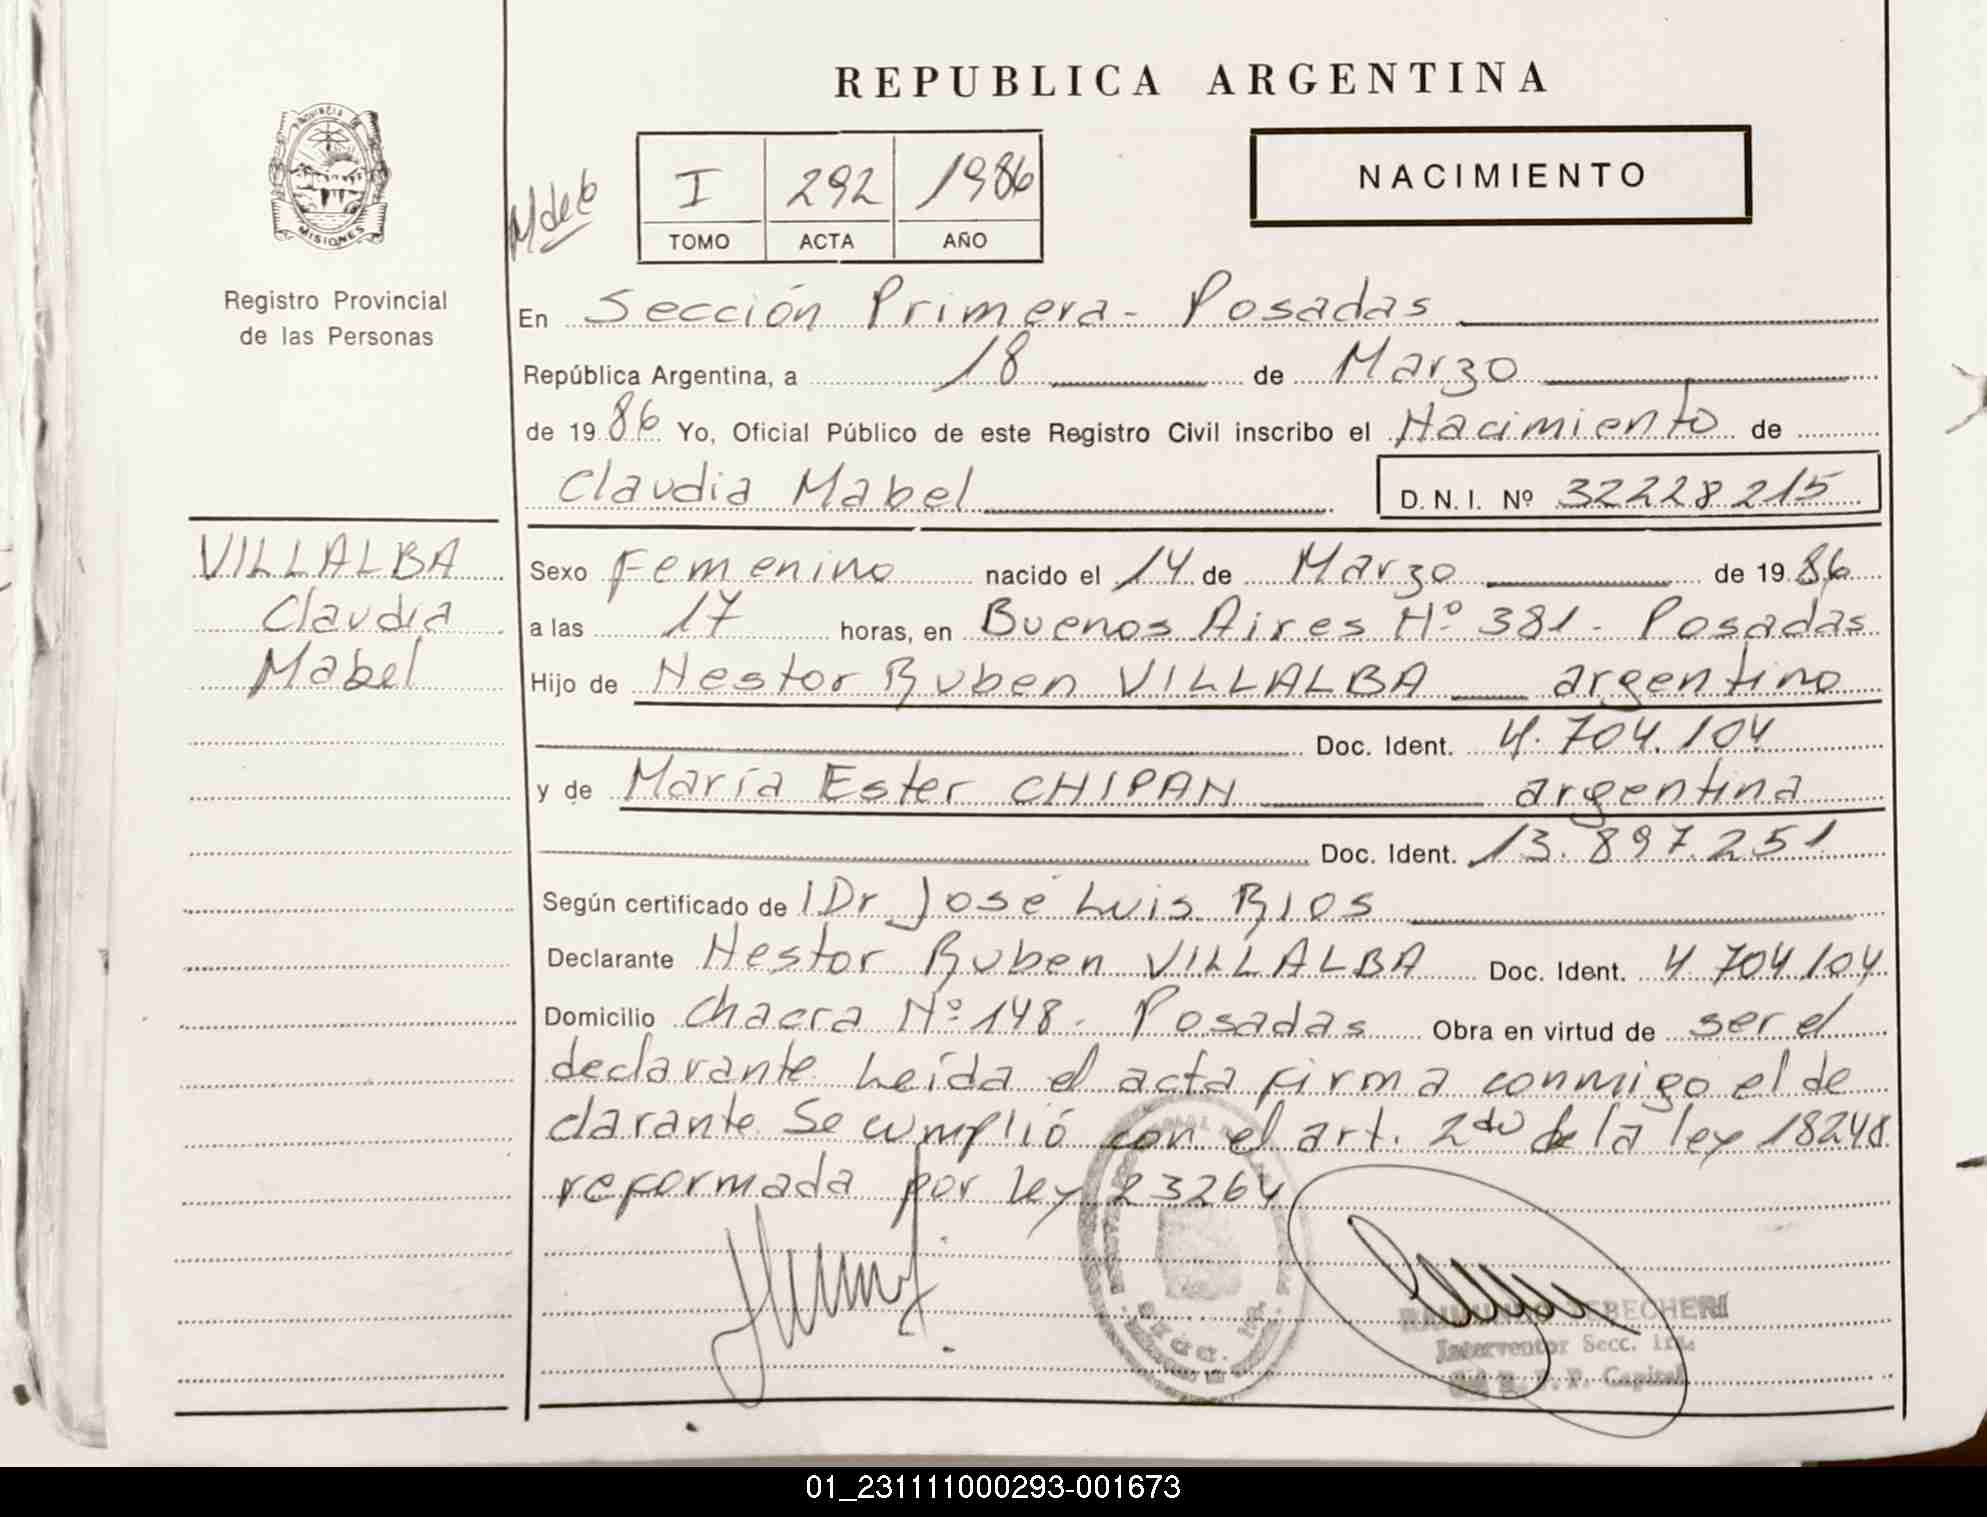 REPUBLICA ARGENTINA
PROVINCIA DE
MISIONES
Registro Provincial
de las Personas
I 292 1986
TOMO ACTA AÑO
NACIMIENTO
En Sección Primera - Posadas
República Argentina, a 18 de Marzo
de 1986 Yo, Oficial Público de este Registro Civil inscribo el Nacimiento de
Claudia Mabel D. N. I. Nº 32228215
VILLALBA
Claudia
Mabel
Sexo Femenino nacido el 14 de Marzo de 1986
a las 17 horas, en Buenos Aires Nº 381 - Posadas
Hijo de Nestor Ruben VILLALBA argentino
Doc. Ident. 4.704.104
y de María Ester CHIPAN argentina
Doc. Ident. 13.897.251
Según certificado de Dr José Luis RIOS
Declarante Nestor Ruben VILLALBA Doc. Ident. 4 704 104
Domicilio Chacra Nº 148 - Posadas Obra en virtud de ser el
declarante Leída el acta firma conmigo el de
clarante Se cumplió con el art. 2do de la ley 18248
reformada por ley 23264
Interventor Secc.
Capital
01_231111000293-001673